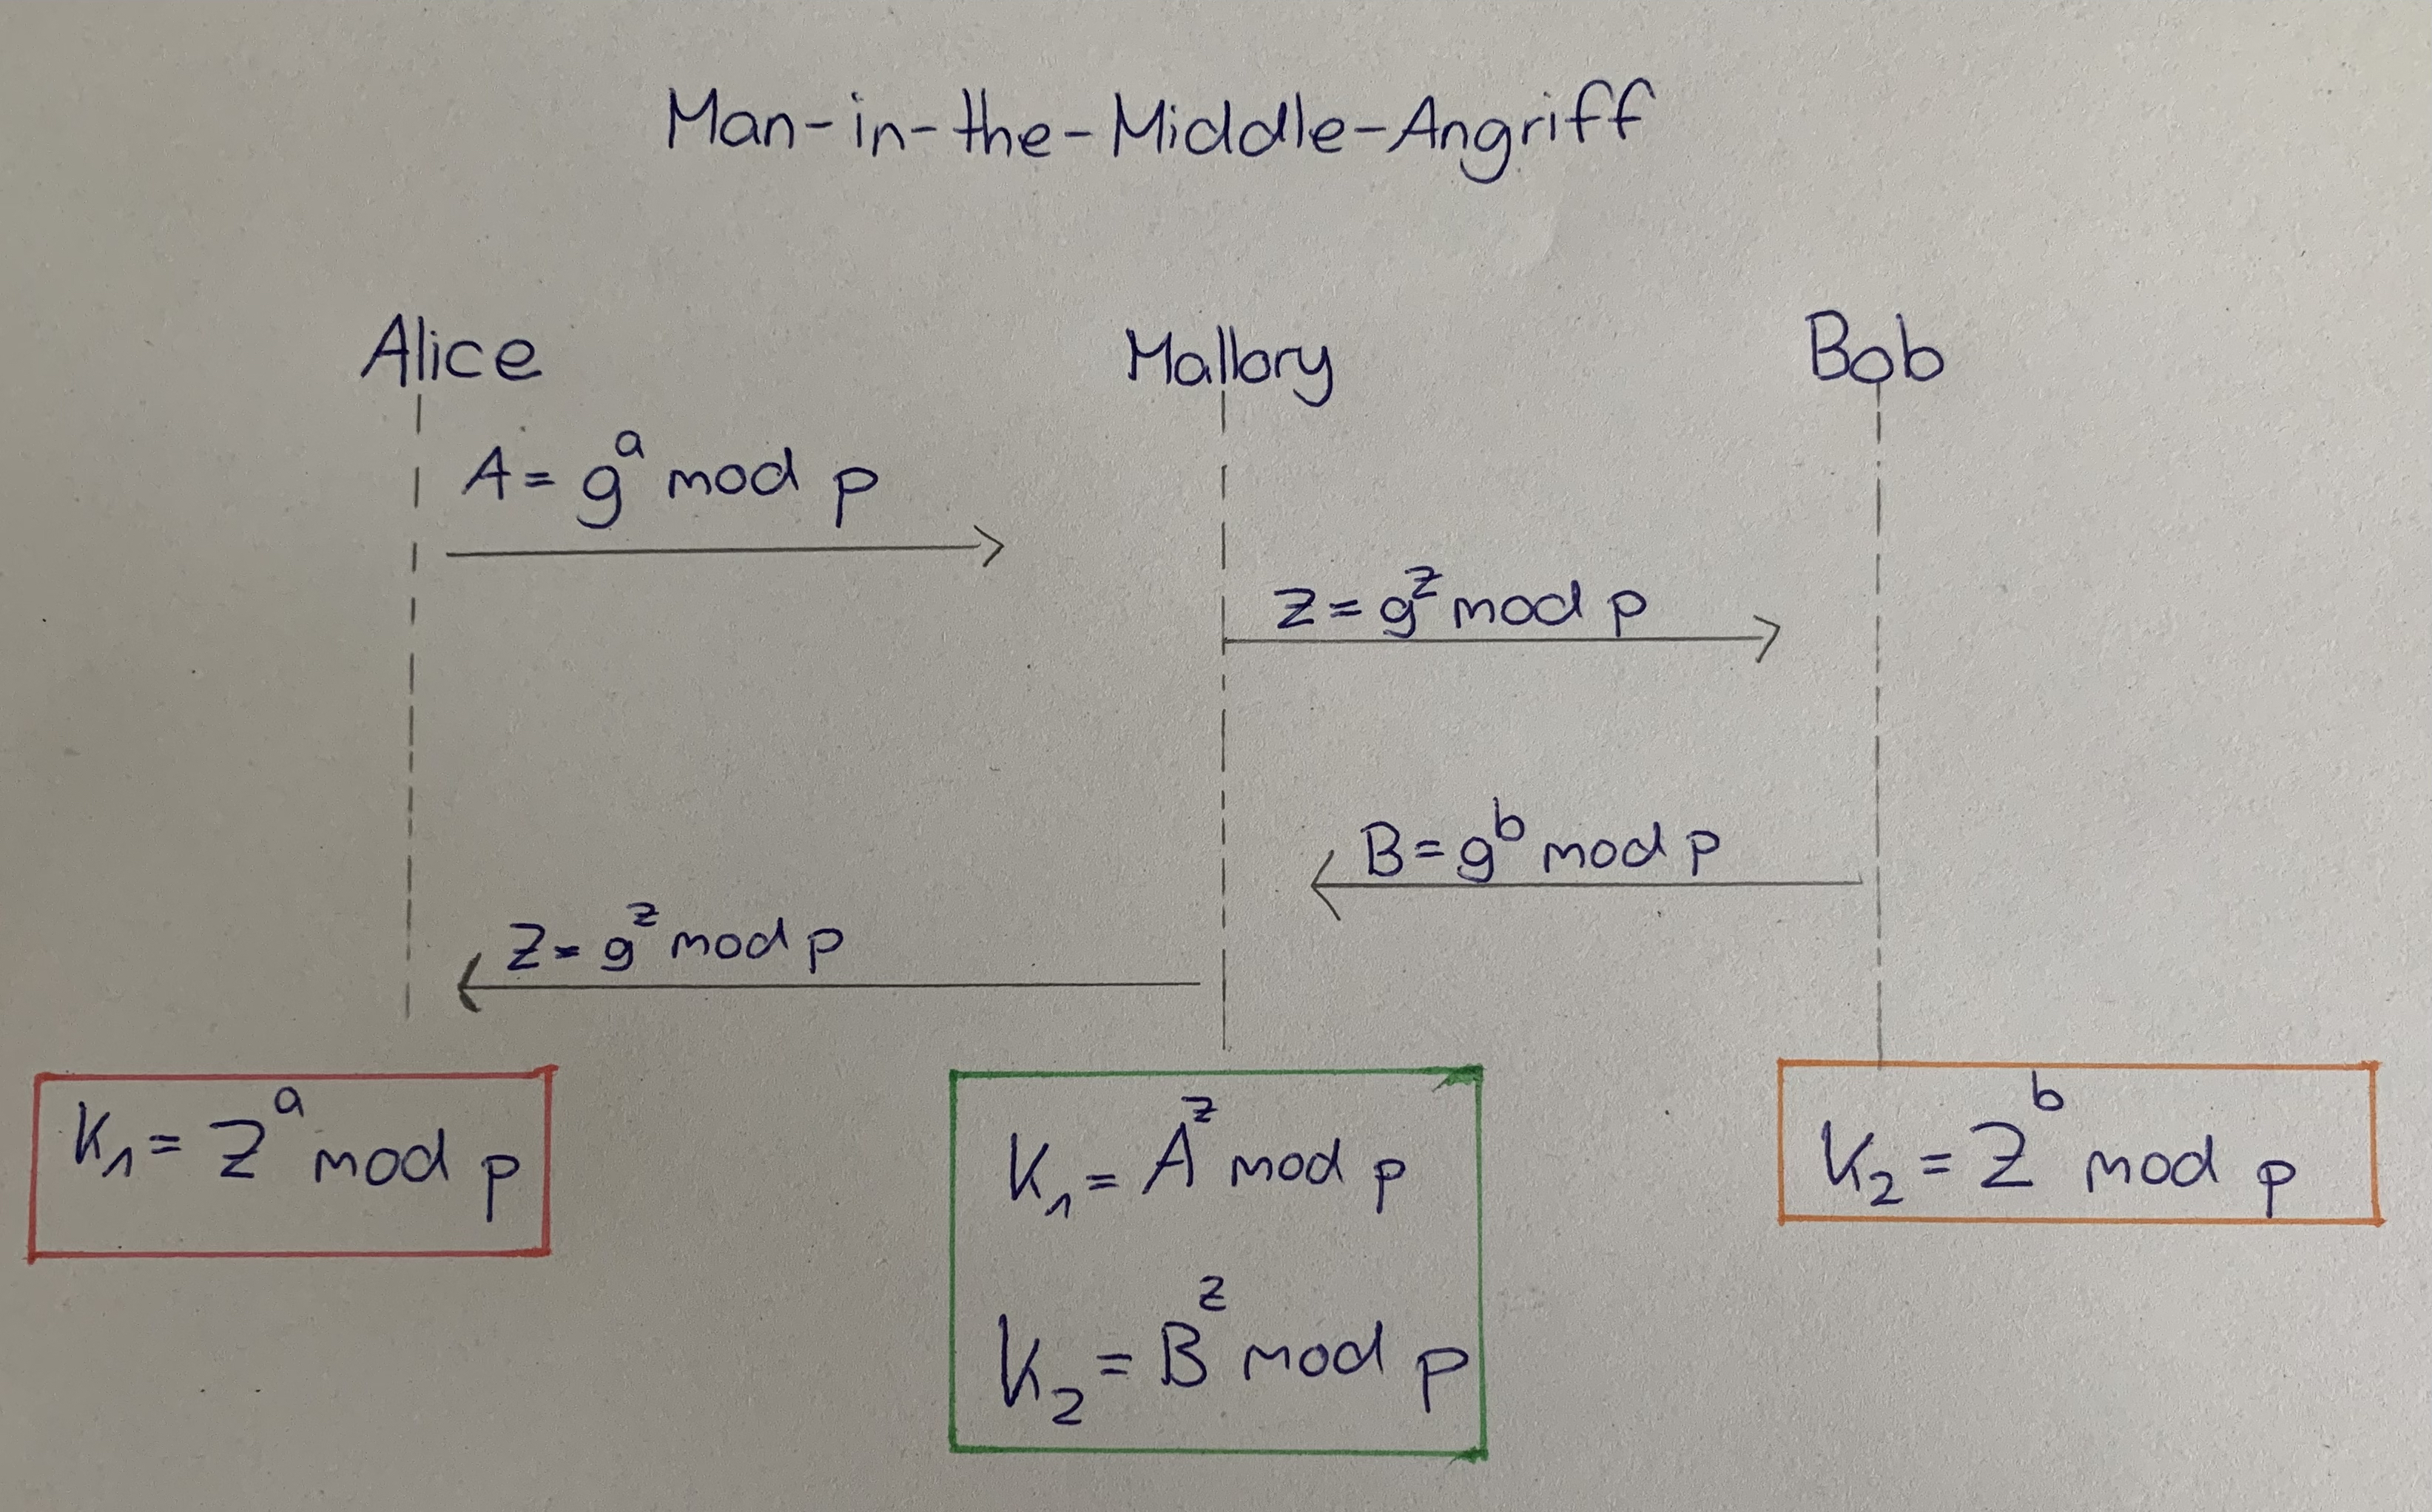 Man-in-the-Middle-Angriff
Alice Mallory Bob
A = g^a mod p
Z = g^z mod p
B = g^b mod p
Z = g^z mod p
K₁ = Z^a mod p
K₁ = A^z mod p
K₂ = B^z mod p
K₂ = Z^b mod p